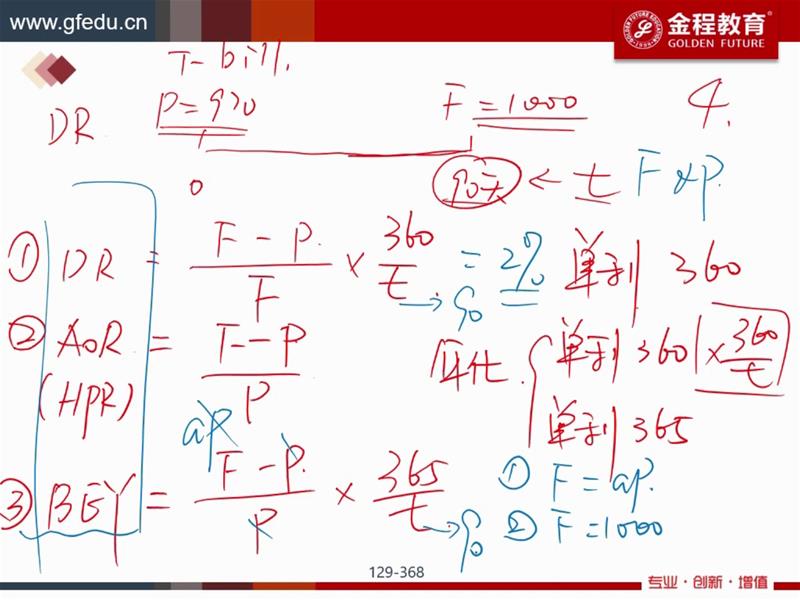 www.gfedu.cn
金程教育
GOLDEN FUTURE
T-bill.
DR P=970 F=1000 4.
0 90天 ← t F & P.
① DR = F-P / F × 360 / t → 90 = 2% 单利 360
② AoR = F-P / P 年化 单利 360 × 360 / t
(HPR) 单利 365
aP
③ BEY = F-P / P × 365 / t → 90 ① F = aP.
② F = 1000
129-368
专业·创新·增值